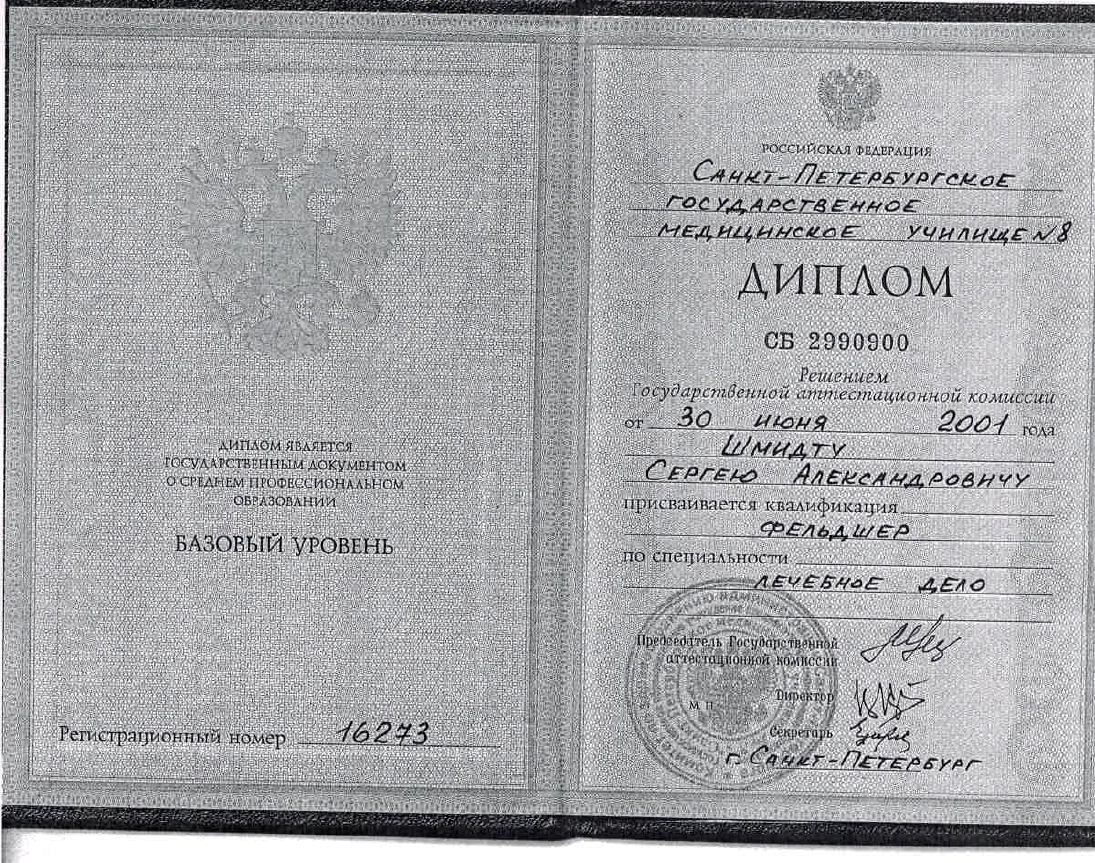 ДИПЛОМ ЯВЛЯЕТСЯ
ГОСУДАРСТВЕННЫМ ДОКУМЕНТОМ
О СРЕДНЕМ ПРОФЕССИОНАЛЬНОМ
ОБРАЗОВАНИИ
БАЗОВЫЙ УРОВЕНЬ
Регистрационный номер 16273
РОССИЙСКАЯ ФЕДЕРАЦИЯ
Санкт-Петербургское
государственное
медицинское училище №8
ДИПЛОМ
СБ 2990900
Решением
Государственной аттестационной комиссии
от 30 июня 2001 года
Шмидту
Сергею Александровичу
присваивается квалификация
фельдшер
по специальности
лечебное дело
Председатель Государственной
аттестационной комиссии
Директор
М П
Секретарь
г. Санкт-Петербург